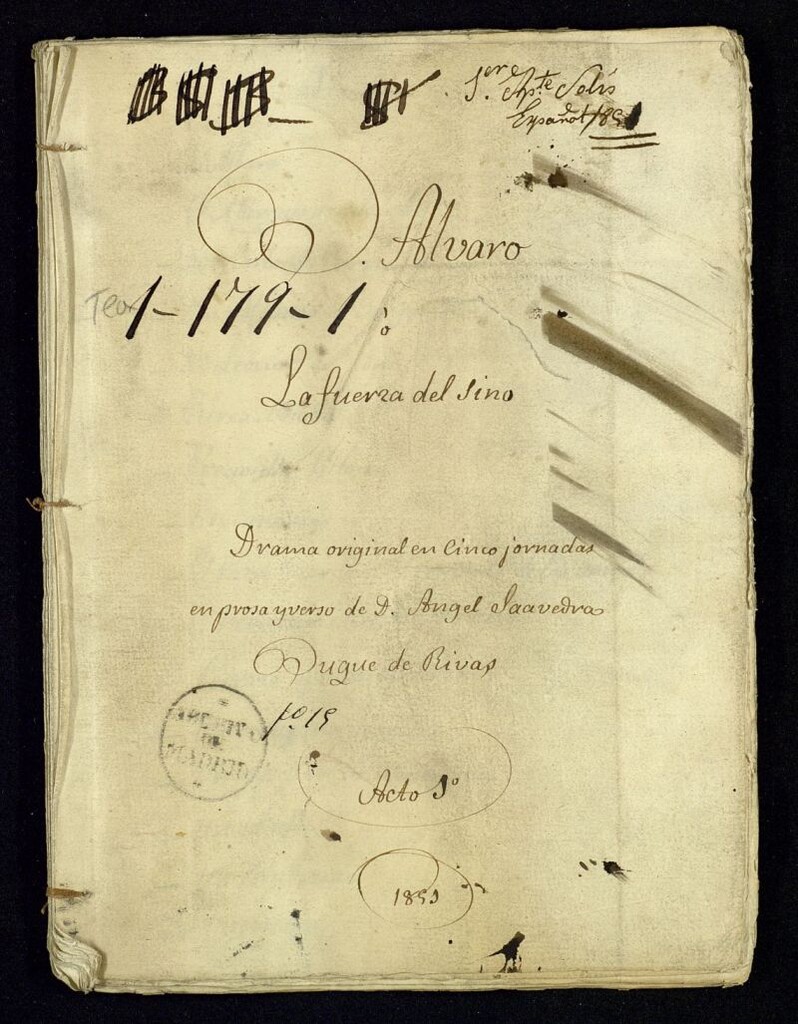 1.er Apte Solís
Español 185
D. Alvaro
Tea 1-179-1
ò
La fuerza del sino
Drama original en Cinco jornadas
en prosa y verso de D. Angel Saavedra
Duque de Rivas
fº 15
Acto 1º
1851